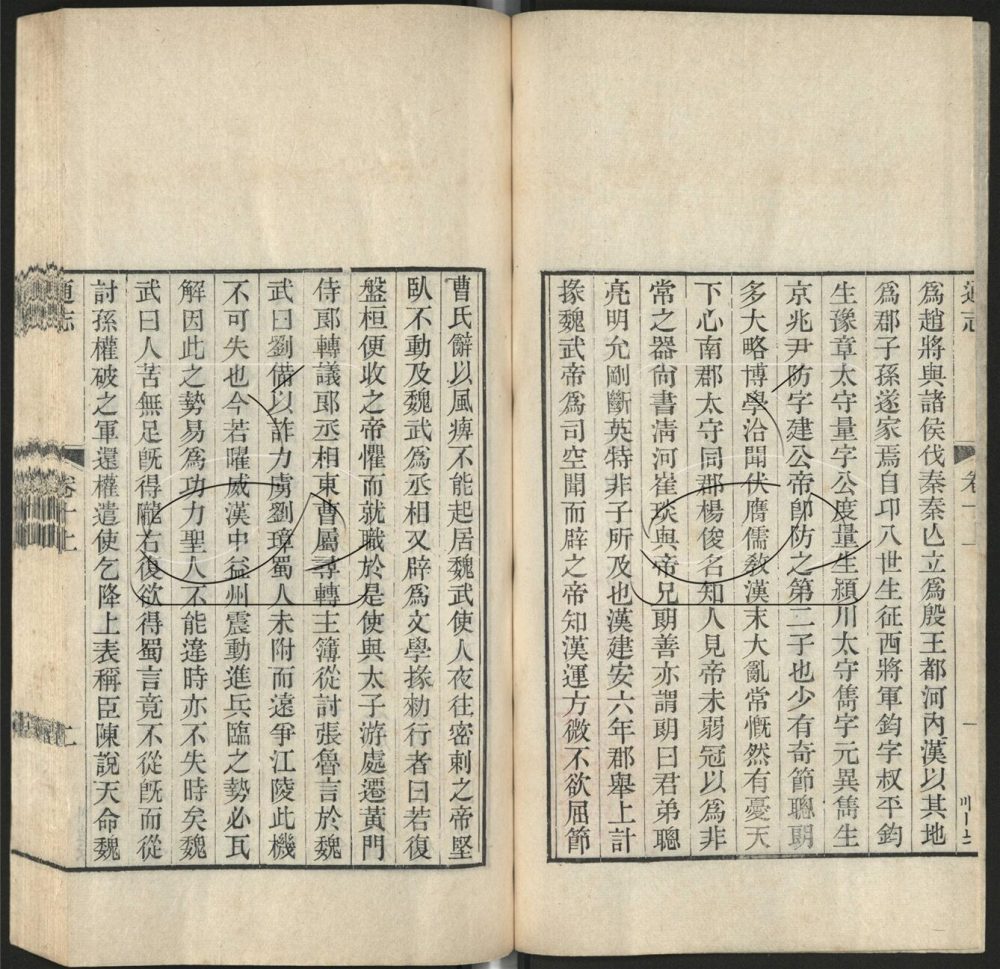 通志
卷十
一
爲趙將與諸侯伐秦秦亾立爲殷王都河內漢以其地
爲郡子孫遂家焉自卬八世生征西將軍鈞字叔平鈞
生豫章太守量字公度量生潁川太守儁字元異儁生
京兆尹防字建公帝卽防之第二子也少有奇節聰朗
多大略博學洽聞伏膺儒敎漢末大亂常慨然有憂天
下心南郡太守同郡楊俊名知人見帝未弱冠以爲非
常之器尙書淸河崔琰與帝兄朗善亦謂朗曰君弟聰
亮明允剛斷英特非子所及也漢建安六年郡舉上計
掾魏武帝爲司空聞而辟之帝知漢運方微不欲屈節
曹氏辭以風痹不能起居魏武使人夜往密刺之帝堅
臥不動及魏武爲丞相又辟爲文學掾勑行者曰若復
盤桓便收之帝懼而就職於是使與太子游處遷黃門
侍郞轉議郞丞相東曹屬尋轉主簿從討張魯言於魏
武曰劉備以詐力虜劉璋蜀人未附而遠爭江陵此機
不可失也今若曜威漢中益州震動進兵臨之勢必瓦
解因此之勢易爲功力聖人不能違時亦不失時矣魏
武曰人苦無足旣得隴右復欲得蜀言竟不從旣而從
討孫權破之軍還權遣使乞降上表稱臣陳說天命魏
通志
卷十上